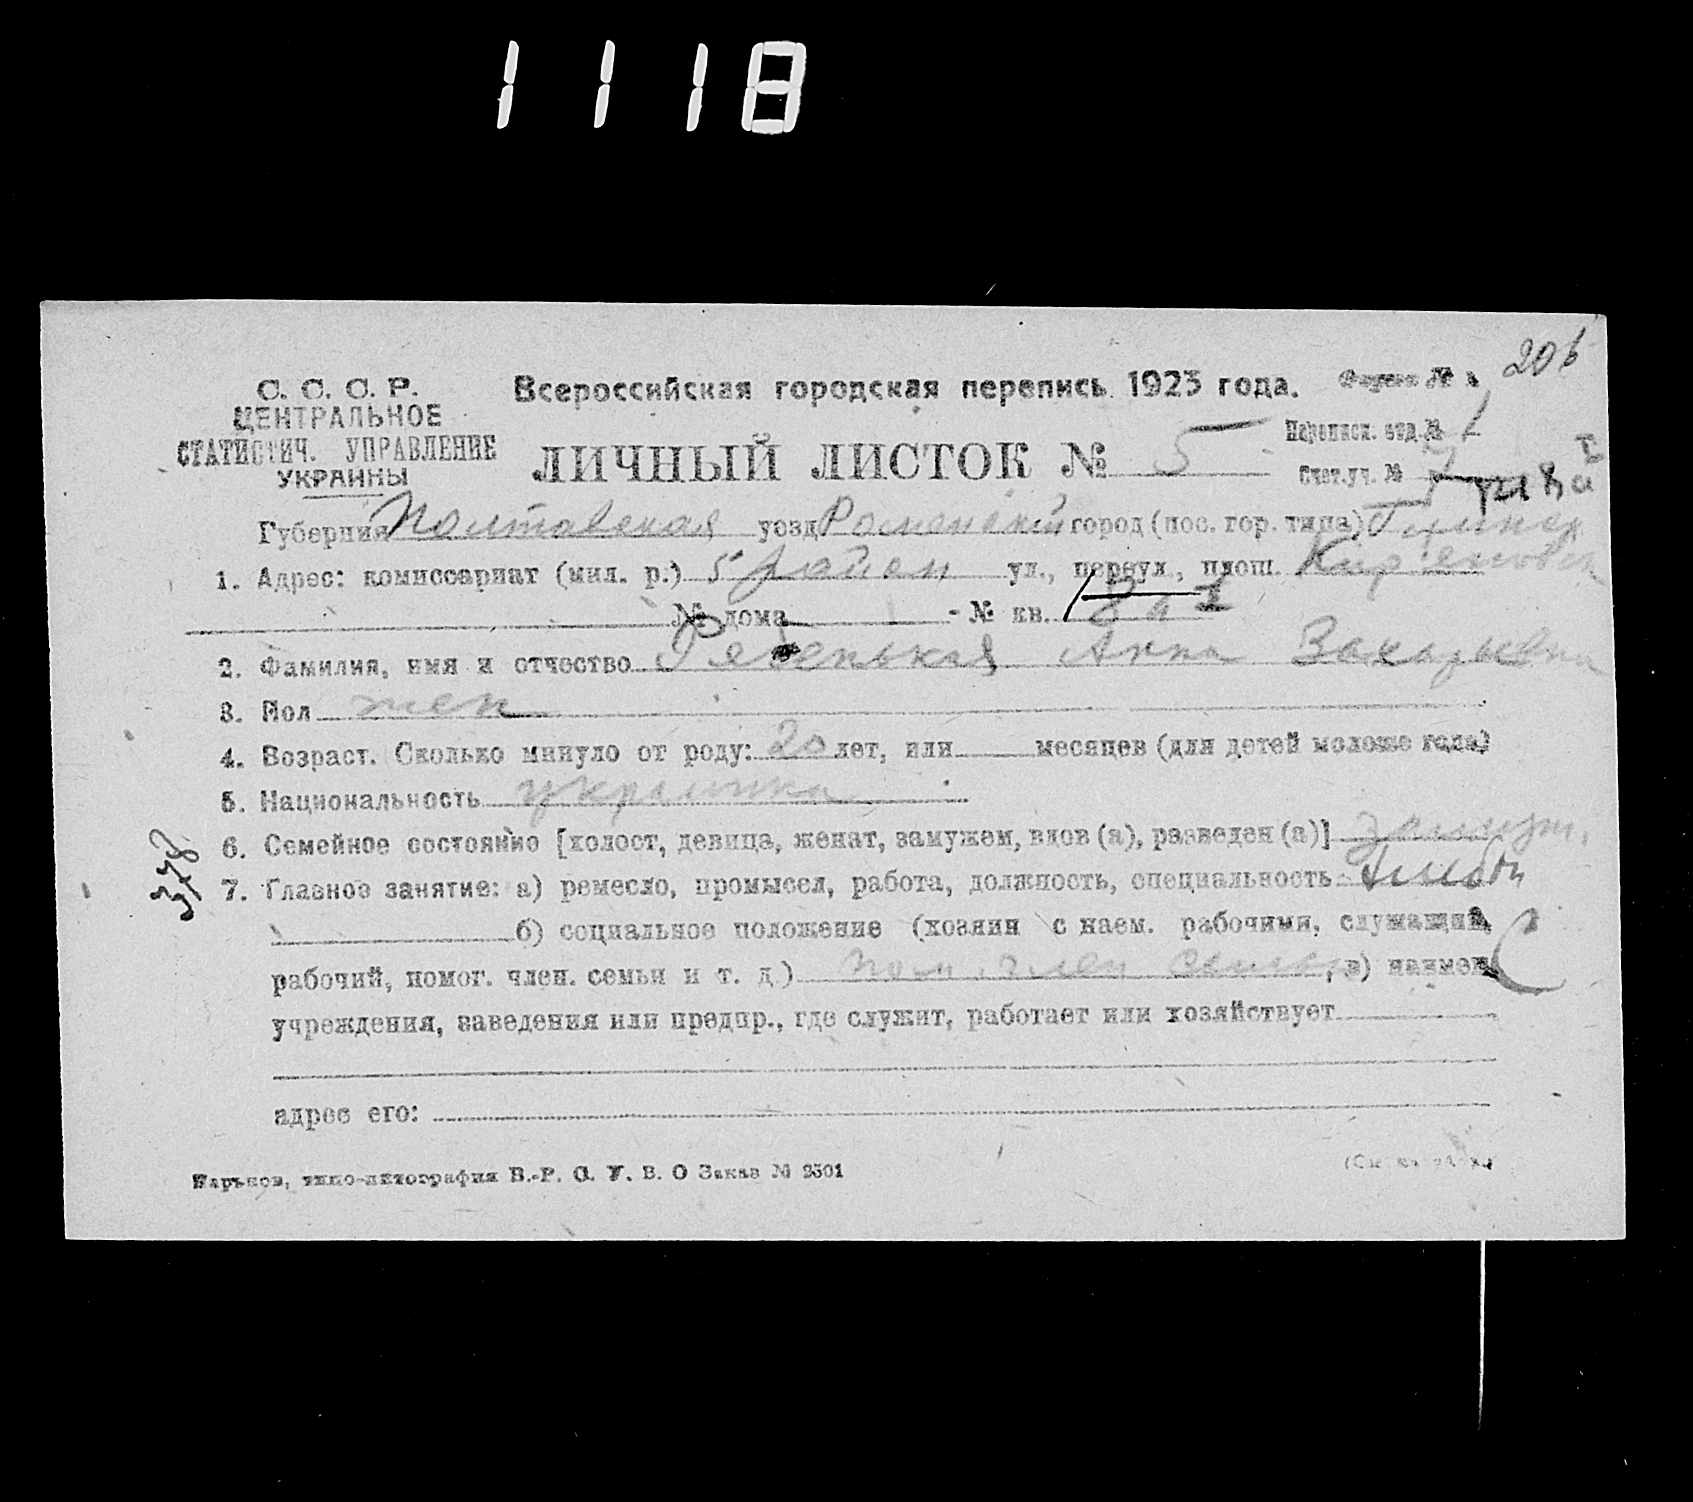 1118
206
С. С. С. Р.
ЦЕНТРАЛЬНОЕ
СТАТИСТИЧ. УПРАВЛЕНИЕ
УКРАИНЫ
Всероссийская городская перепись 1923 года.
Форма №
ЛИЧНЫЙ ЛИСТОК № 5
Переписн. отд. № 1
Счет. уч. №
Губерния Полтавская уезд Роменский город (пос. гор. типа) Глинск
1. Адрес: комиссариат (мил. р.) 5 район ул., переул., площ.
№ дома - № кв.
2. Фамилия, имя и отчество Рябенькая Анна Захарьевна
3. Пол жен
4. Возраст. Сколько минуло от роду: 20 лет, или месяцев (для детей моложе года)
5. Национальность украинка
6. Семейное состояние [холост, девица, женат, замужем, вдов (а), разведен (а)] замуж.
378
7. Главное занятие: а) ремесло, промысел, работа, должность, специальность
б) социальное положение (хозяин с наем. рабочими, служащий,
рабочий, помог. член. семьи и т. д.) пом. член семьи, в) наимен.
учреждения, заведения или предпр., где служит, работает или хозяйствует
адрес его:
Харьков, типо-литография В.-Р. О. У. В. О Заказ № 2301